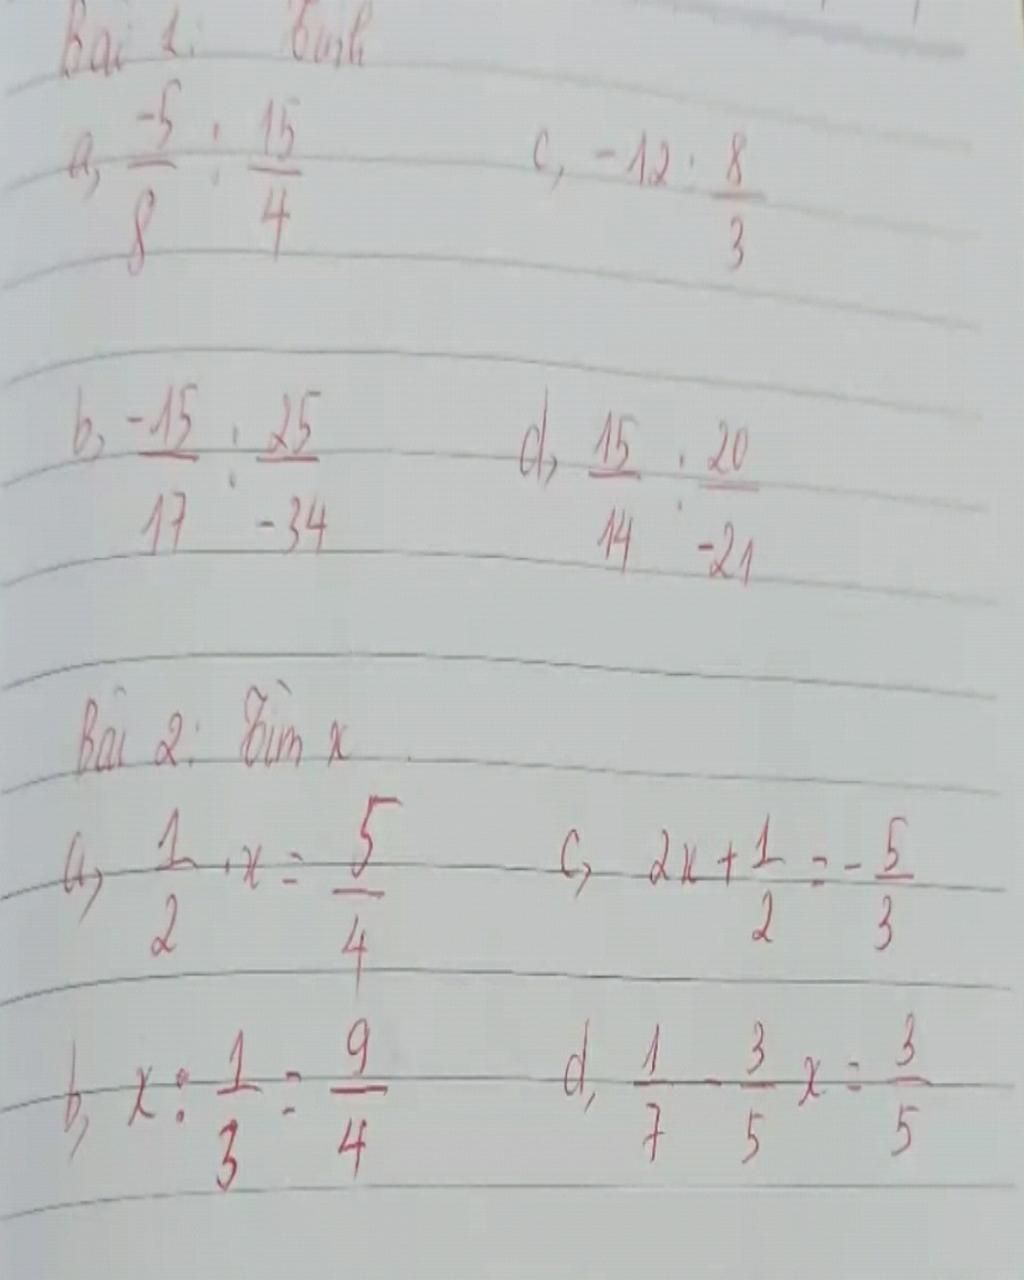 Bài 1: Tính
a, -5/8 : 15/4    c, -12 : 8/3
b, -15/17 : 25/-34    d, 15/14 : 20/-21
Bài 2: Tìm x
a, 1/2 . x = 5/4    c, 2x + 1/2 = - 5/3
b, x : 1/3 = 9/4    d, 1/7 - 3/5 x = 3/5